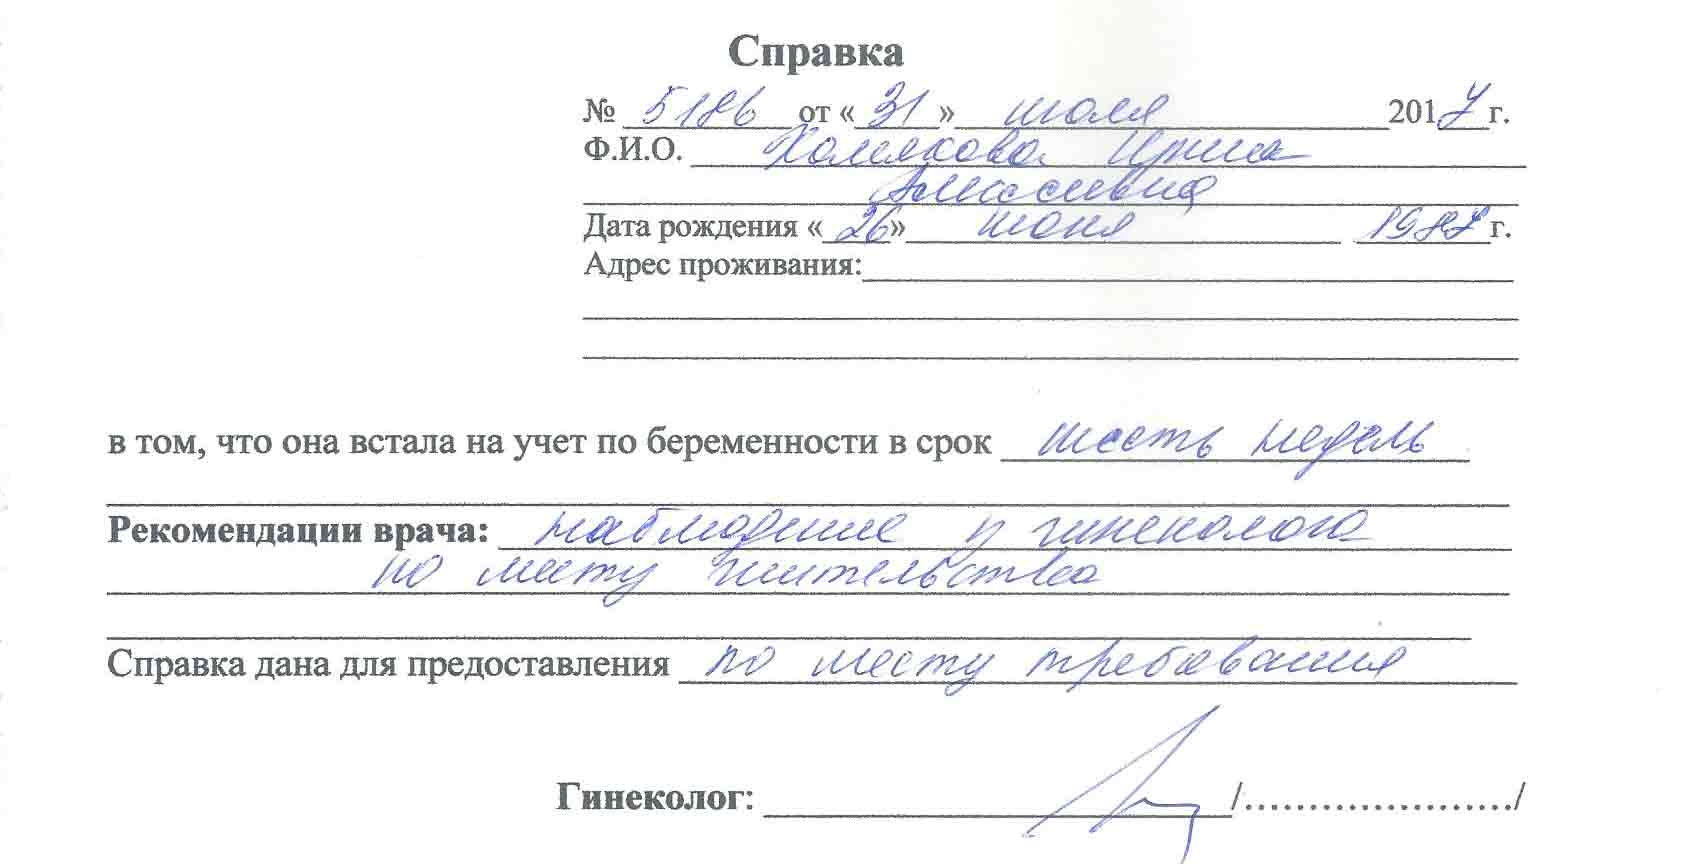 Справка
№ 5186 от «31» июля 2017 г.
Ф.И.О. Холмякова Ирина
Дата рождения «26» июня 1987 г.
Адрес проживания:
в том, что она встала на учет по беременности в срок шесть недель
Рекомендации врача: наблюдение у гинеколога
по месту жительства
Справка дана для предоставления по месту требования
Гинеколог: /...................../